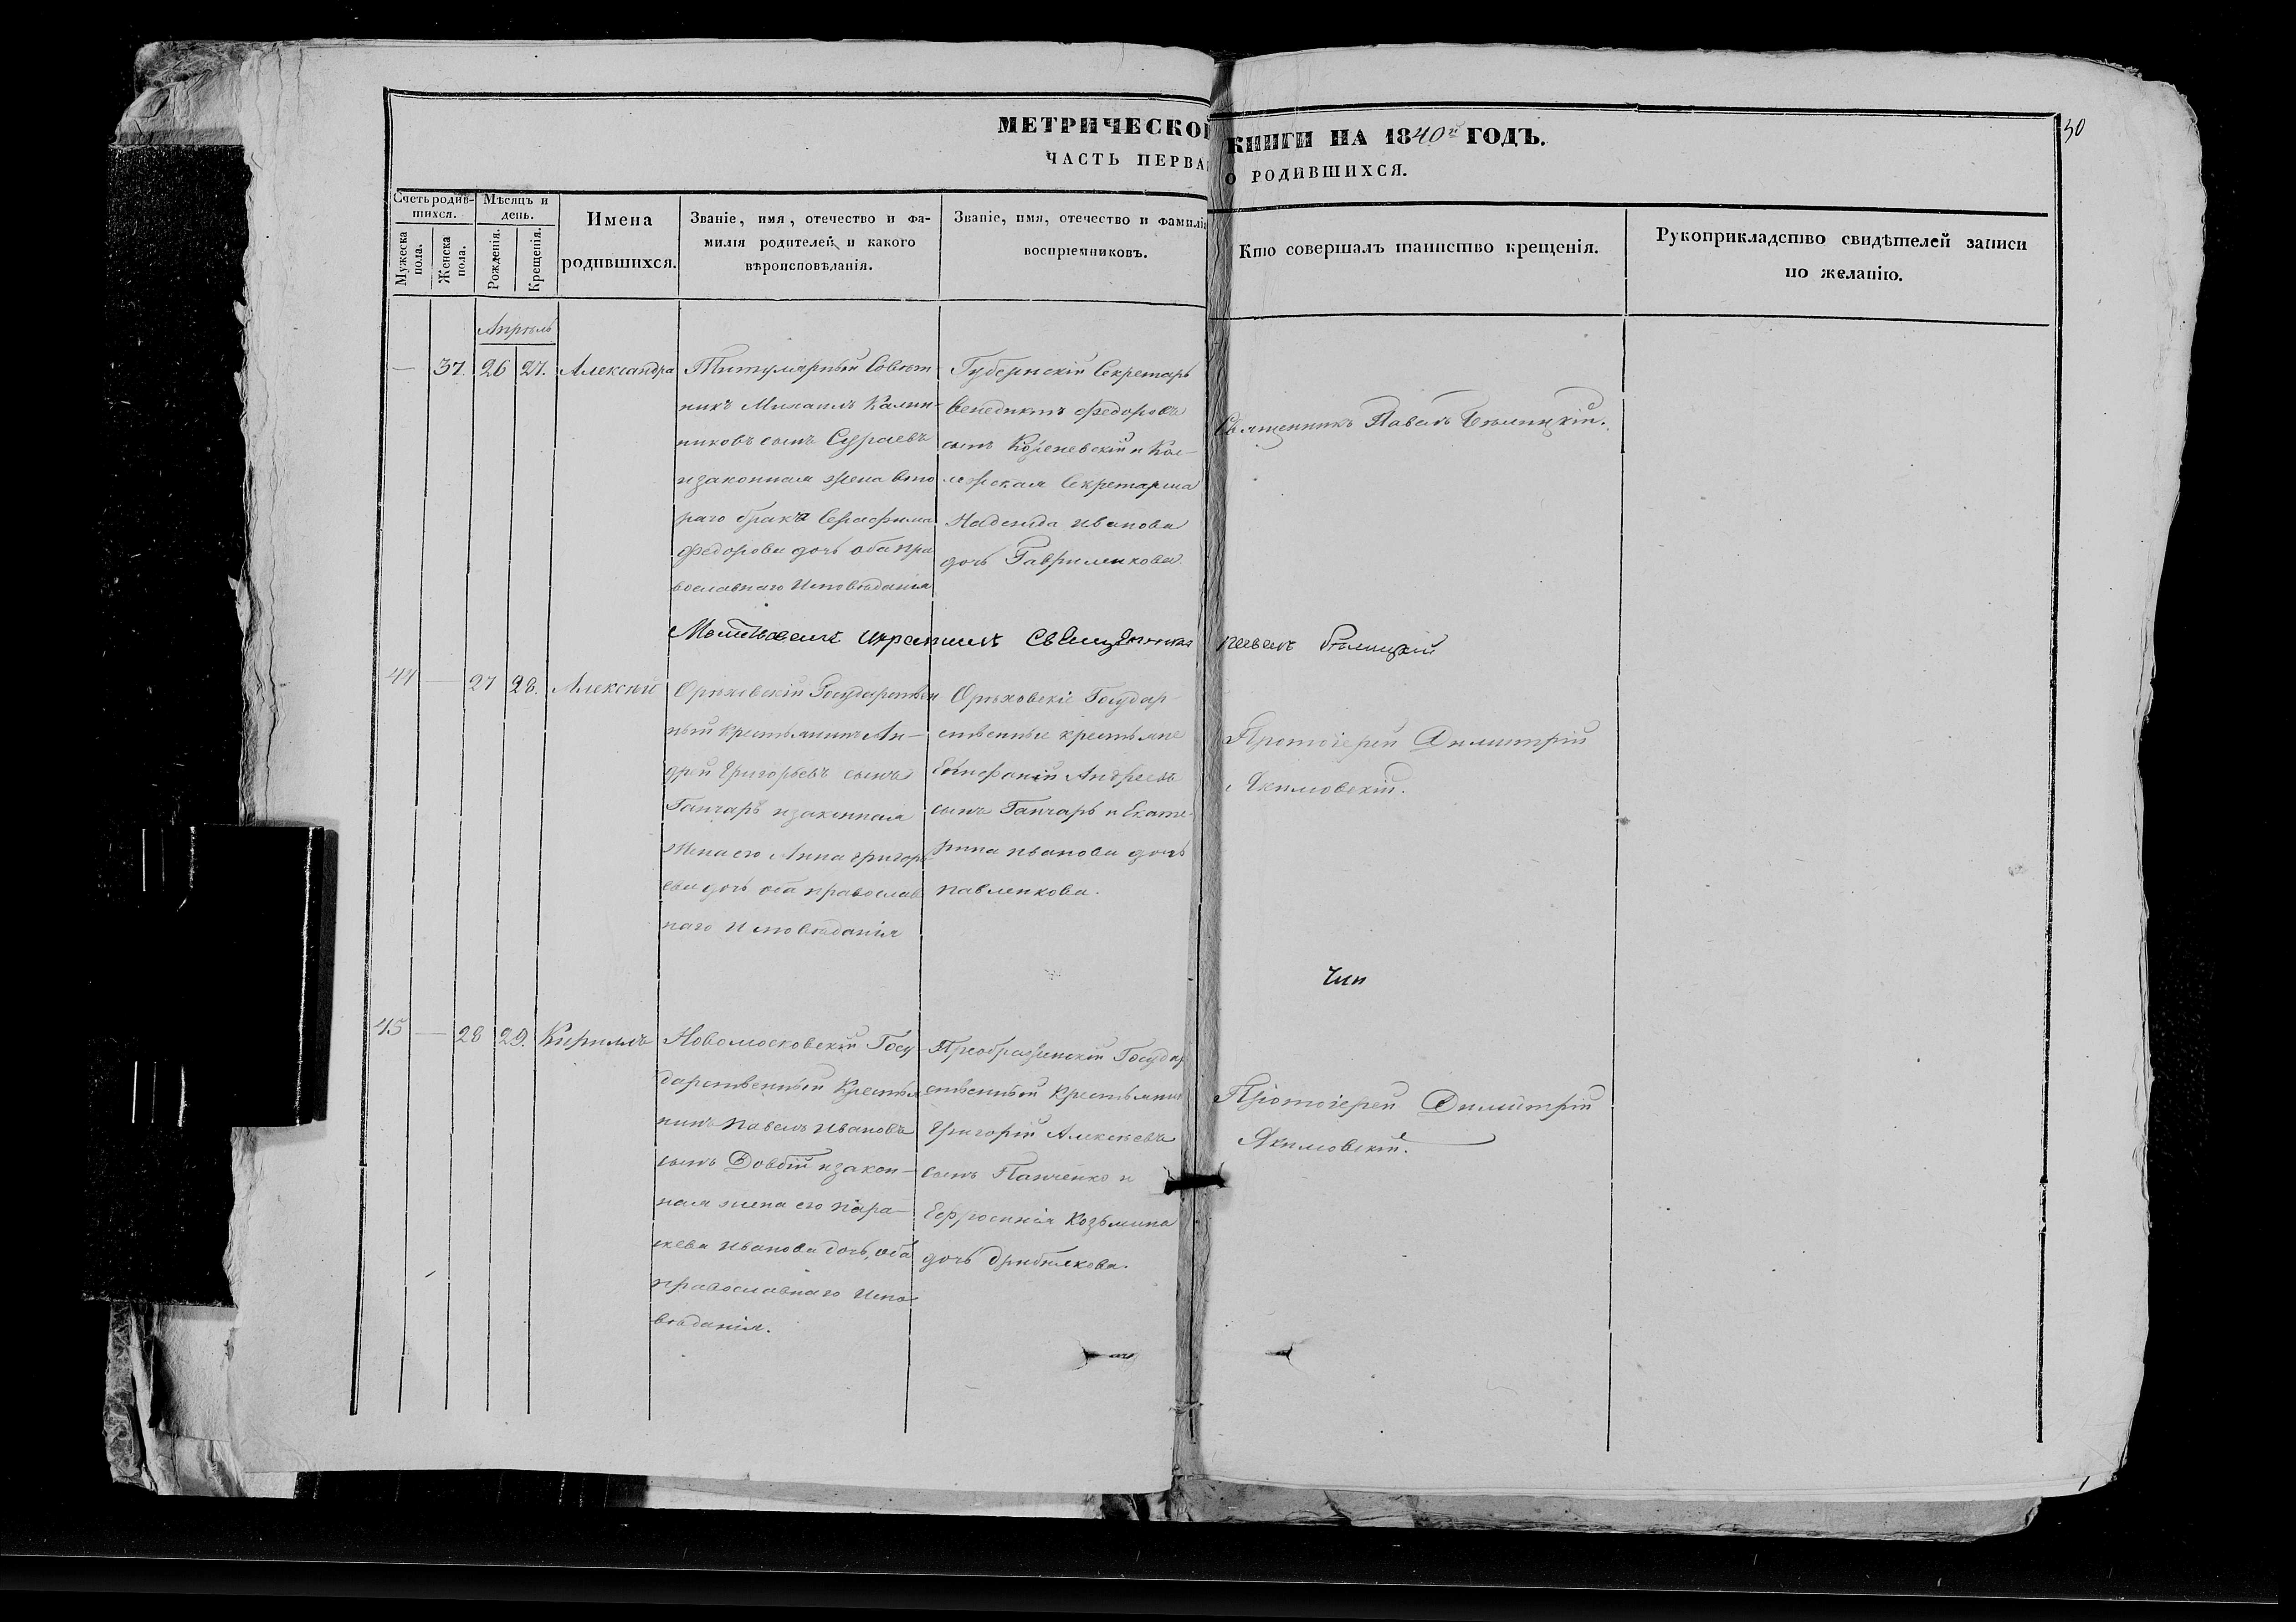 МЕТРИЧЕСКОЙ КНИГИ НА 1840й ГОДЪ.
50
ЧАСТЬ ПЕРВАЯ О РОДИВШИХСЯ.
Счетъ родив-
шихся.
Мужеска пола.
Женска пола.
Мѣсяцъ и
день.
Рожденія.
Крещенія.
Имена
родившихся.
Званіе, имя, отечество и фа-
милія родителей, и какого
вѣроисповѣданія.
Званіе, имя, отечество и фамилія
воспріемниковъ.
Кто совершалъ таинство крещенія.
Рукоприкладство свидѣтелей записи
по желанію.
Апрѣль
— 37. 26 27. Александра
Титулярный Совѣт-
никъ Михаилъ Калин-
никовъ сынъ
и законная жена вто
раго брака Серафима
Федорова дочь оба пра
вославнаго Исповѣданія
Губернскій Секретарь
Венедиктъ Федоровъ
сынъ Кореневскій и Кол-
лежская Секретарша
Надежда Иванова
дочь Гавриленкова
Священникъ Павелъ Бѣлицкій.
Молитвовалъ и крестилъ Священникъ Павелъ Бѣлицкій
44 — 27 28. Алексѣй
Орѣховскій Государствен
ный крестьянинъ Ан-
дрей Григорьевъ сынъ
Ганчаръ и законная
жена его Анна Григорь
ева дочь оба православ
наго Исповѣданія
Орѣховскіе Государ-
ственные крестьяне
Епифаній Андреевъ
сынъ Ганчаръ и Екате-
рина Иванова дочь
Павленкова.
Протоіерей Димитрій
Акимовскій.
45 — 28 29. Кириллъ
Новомосковскій Госу-
дарственный Крестья
нинъ Павелъ Ивановъ
сынъ Довбій и закон-
ная жена его Пара-
скева Иванова дочь, оба
православнаго Испо-
вѣданія.
Преображенскій Государ
ственный Крестьянин
Григорій Алексѣевъ
сынъ Панченко и
Евфросинія Козьмина
дочь
Протоіерей Димитрій
Акимовскій.